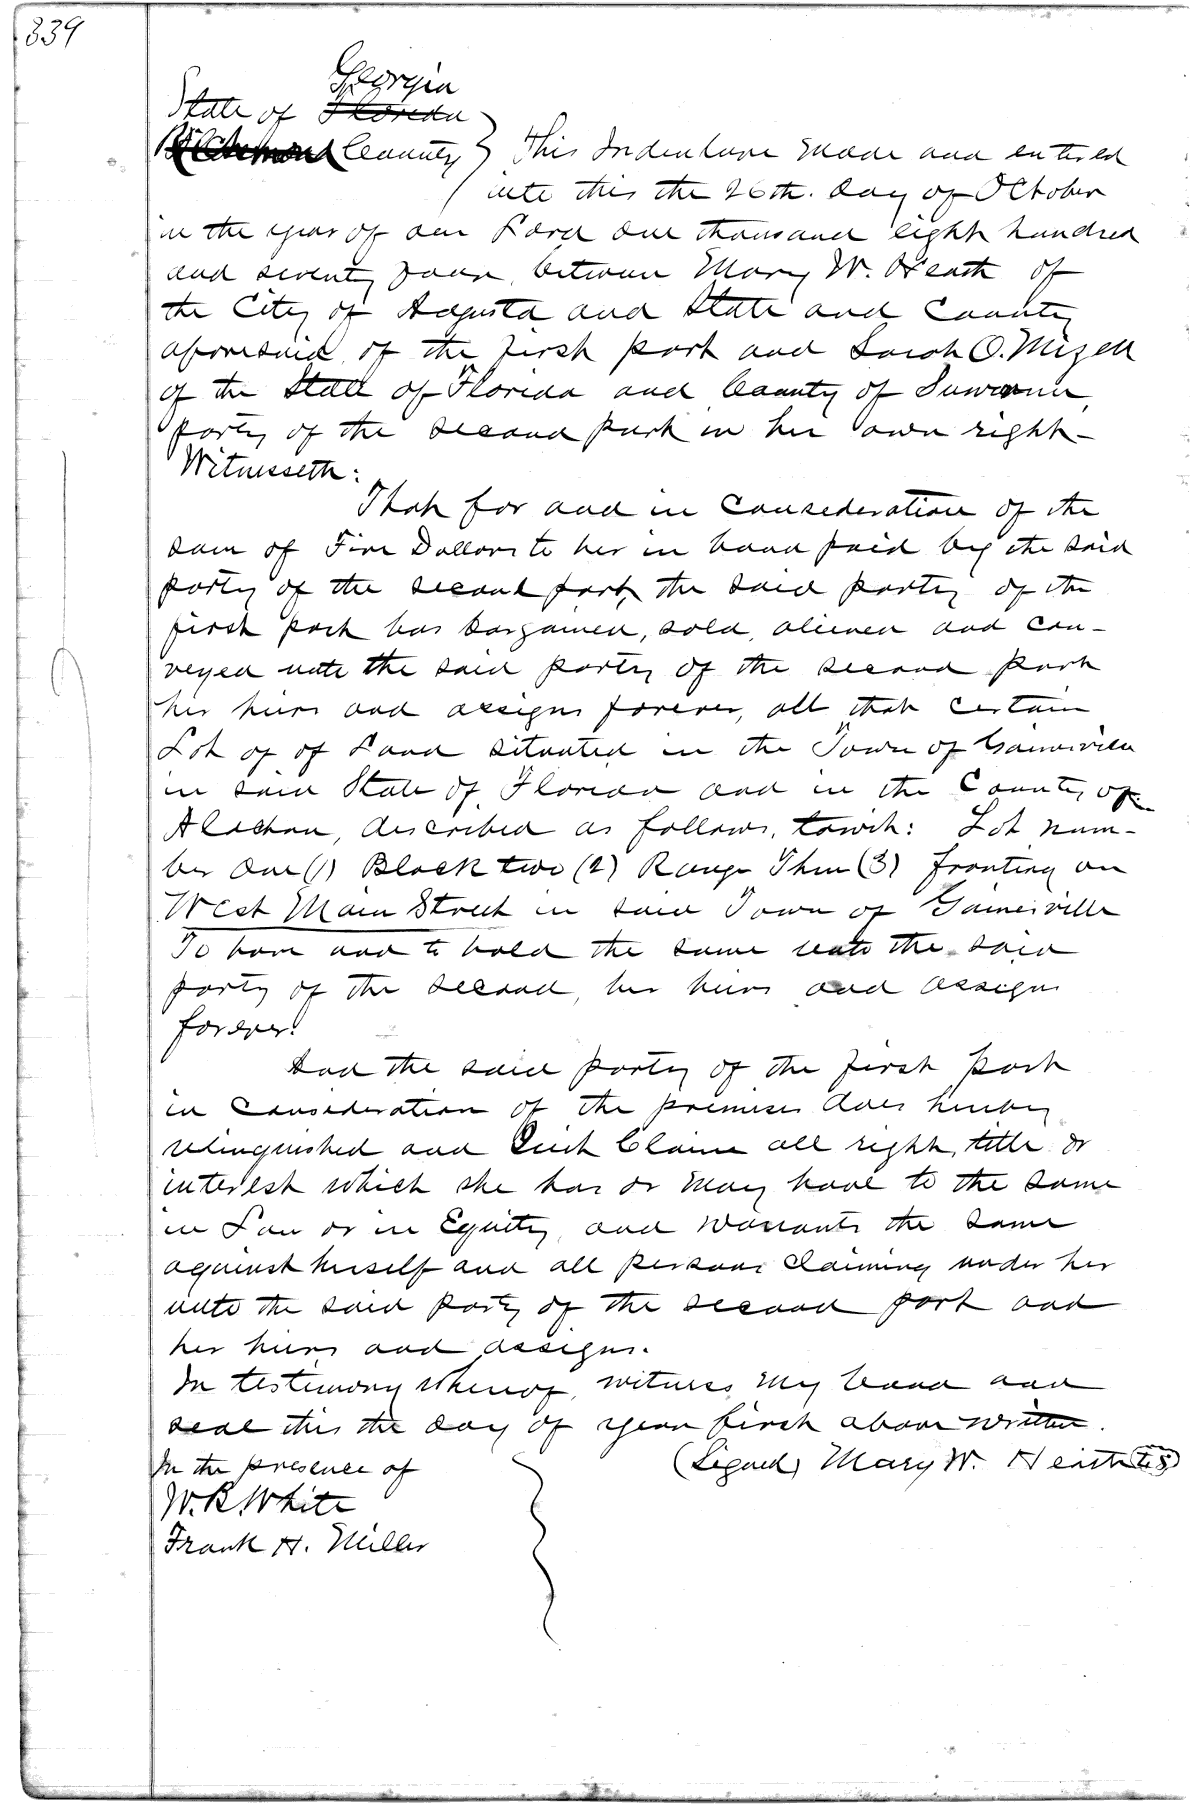 339
Georgia
State of Florida
Richmond County } This Indenture made and entered
into this the 26th. day of October
in the year of our Lord one thousand eight hundred
and seventy four, between Mary W. Heath of
the City of Augusta and State and County
aforesaid, of the first part and Sarah O. Mizell
of the State of Florida and County of Suwannee,
party of the second part in her own right-
Witnesseth:
That for and in consideration of the
sum of Five Dollars to her in hand paid by the said
party of the second part, the said party of the
first part has bargained, sold, aliened and con-
veyed unto the said party of the second part
her heirs and assigns forever, all that certain
Lot of of Land situated in the Town of Gainesville
in said State of Florida and in the County of
Alachua, described as follows, towit: Lot num-
ber One (1) Block two (2) Range Three (3) fronting on
West Main Street in said Town of Gainesville
To have and to hold the same unto the said
party of the second, her heirs and assigns
forever.
And the said party of the first part
in consideration of the premises does hereby
relinquished and Quit Claim all right, title or
interest which she has or may have to the same
in Law or in Equity, and warrants the same
against herself and all persons claiming under her
unto the said party of the second part and
her heirs and assigns.
In testimony whereof, witness my hand and
seal this the day of year first above written.
In the presence of (Signed) Mary W. Heath (LS)
W. R. White
Frank H. Miller